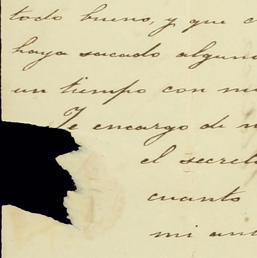 todo bueno, y que c
haya sacado alguno
un tiempo con mu
Te encargo de n
el secret
cuanto
mi am